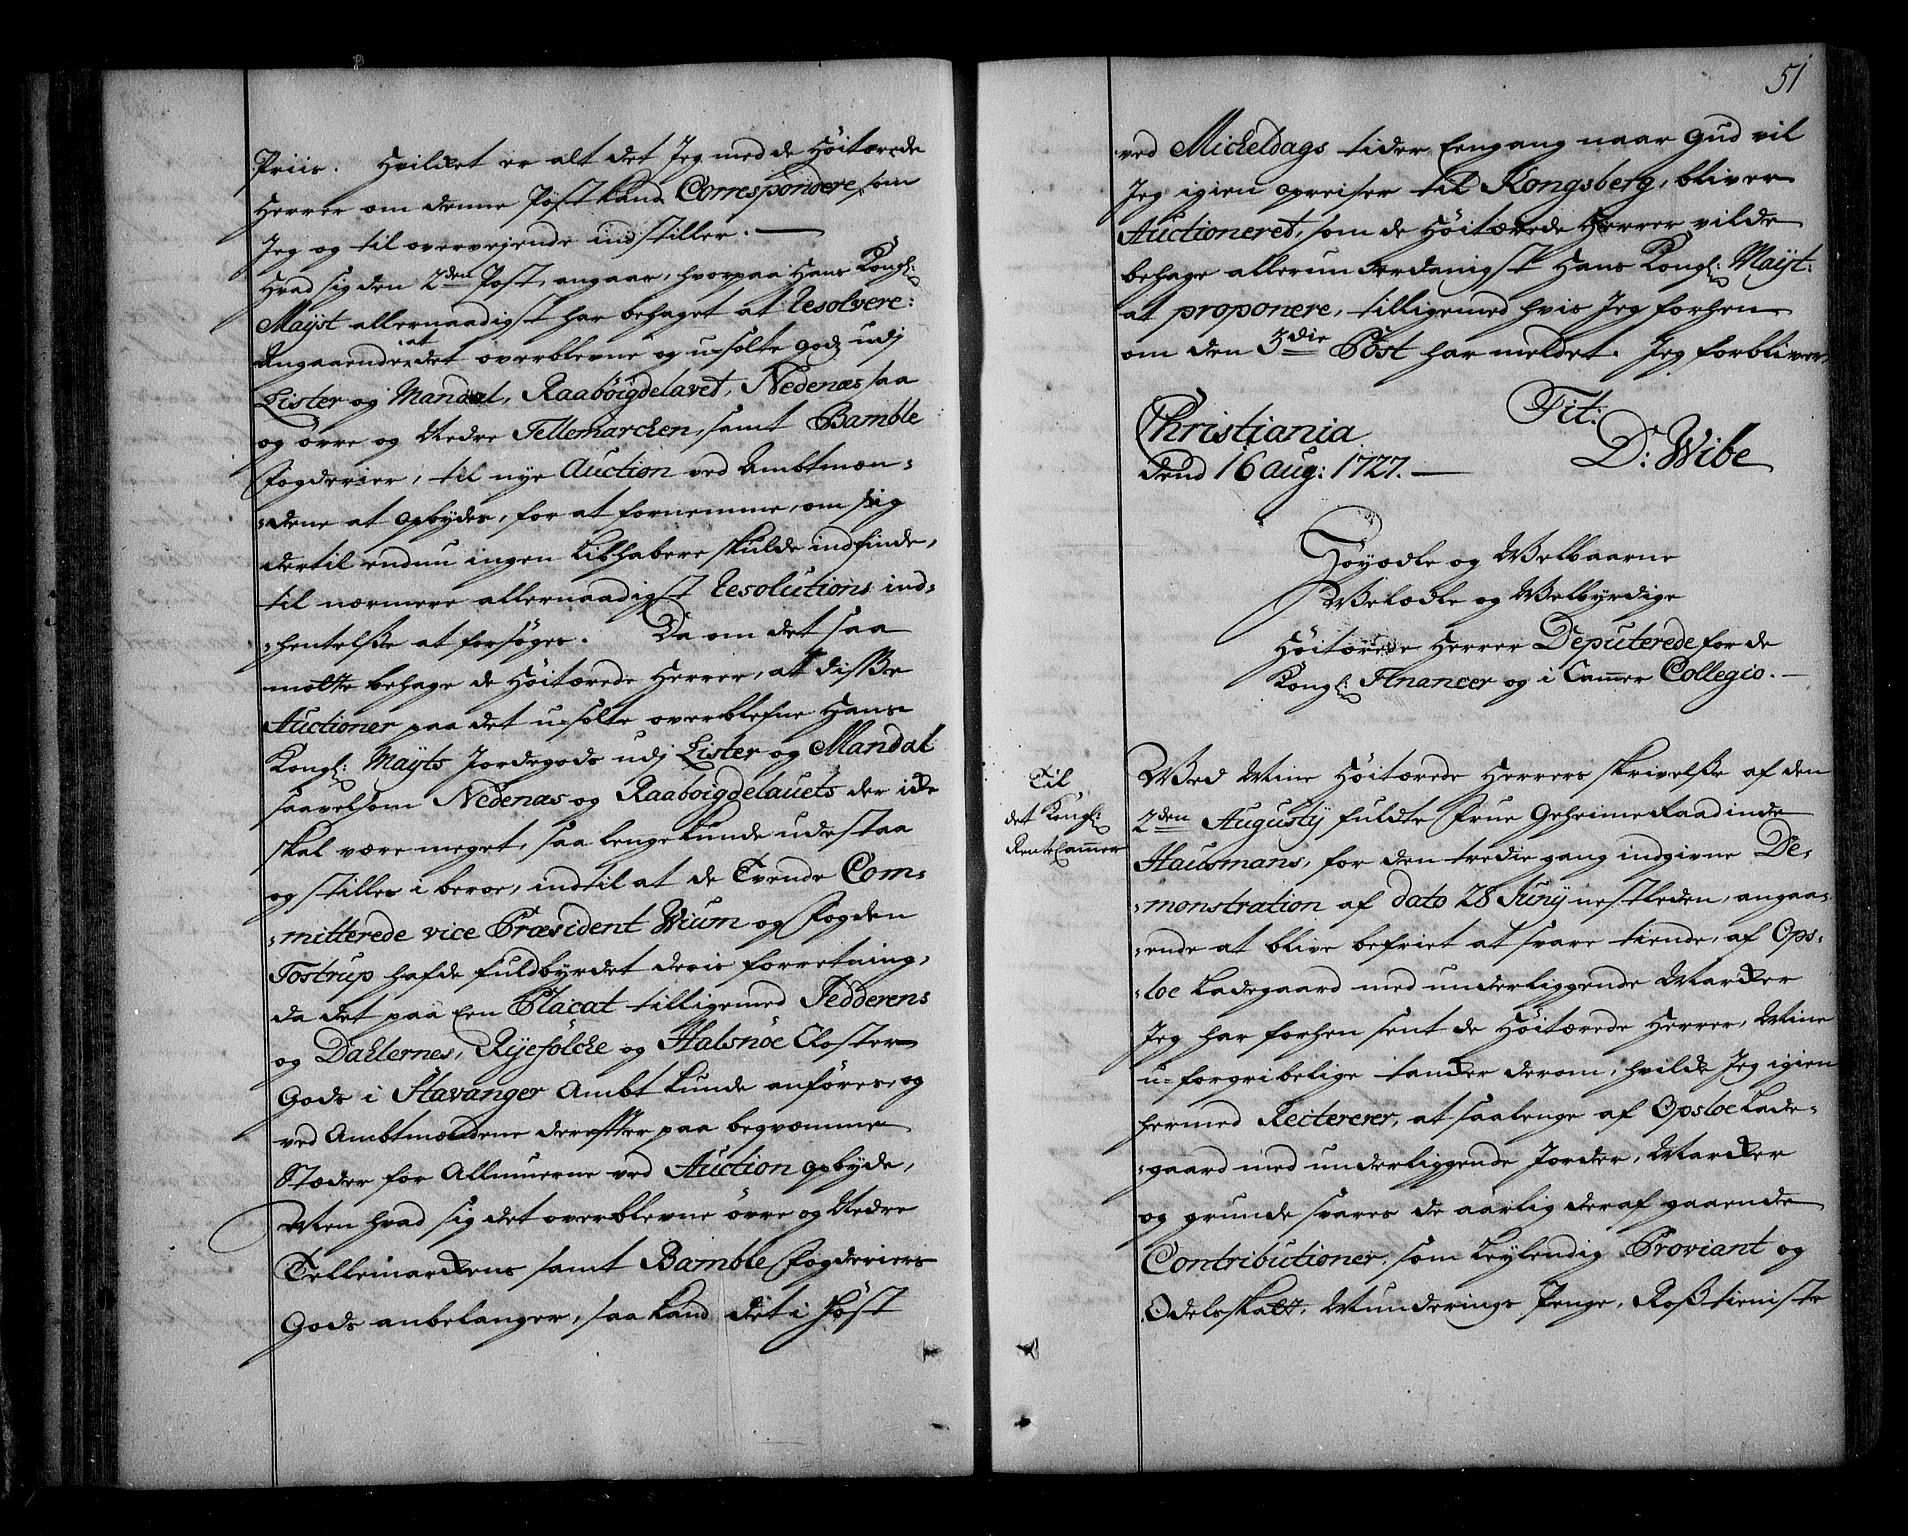 Priis. Hvilket er alt det Jeg med de Höitærede
Herrer om denne Post kand Correspondere, som
Jeg og til overvejende indstiller. —
Hvad sig den 2den Post, angaar, hvorpaa Hans Kongl:
Mayst allernaadigst har behaget at Resolvere:
Angaaende at det overblevne og usolte Gods udj
Lister og Mandal, Raaböigdelavet, Nedenæs saa
og övre og Nedre Tellemarchen, samt Bamble
Fogderier, til nye Auction ved Ambtmæn-
-dene at opbydes, for at fornemme, om sig
dertil endnu ingen Libhabere skulde indfinde,
til nærmere allernaadigst Resolutions ind-
-hentelse at forsöges. Da om det saa
motte behage de Höitærede Herrer, at disse
Auctioner paa det usolte overblefne Hans
Kongl: Mayts Jordegods udj Lister og Mandal
saavelsom Nedenæs og Raaboigdelauets der icke
skal være meget, saa lenge kunde udestaa
og stilles i beroe, indtil at de Tvende Com-
-mitterede vice Præsident Wium og Fogden
Tostrup hafde fuldbyrdet deris forretning,
da det paa een Placat tilligemed Jedderens
og Dahlernes, Ryefölcke og Halsnöe Closters
Gods i Stavanger Ambt kunde anföres, og
ved Ambtmændene derefter paa begvemme
Stæder for Allmuerne ved Auction opbyde,
Men hvad sig det overblevne övre og Nedre
Tellemarckens samt Bamble Fogderiers
Gods anbelanger, saa kand det i Höst
51
ved Micheldags tider Eengang naar Gud vil
Jeg igien opreiser til Kongsberg, bliver
Auctioneret, som de Höitærede Herrer vilde
behage allerunderdanigst Hans Kongl: Mayt:
at proponere, tilligemed hvis Jeg forhen
om den 3die Post har meldet. Jeg forbliver
Tit:
Christiania
dend 16 aug: 1727. —
D: Wibe
Höyædle og Welbaarne
Welædle og Welbyrdige
Höitærede Herrer Deputerede for de
Kongl: Financer og i Cammer Collegio. —
Til
det Kongl:
Rente Cammer
Med Mine Höitærede Herrers skrivelse af den
2den Augusty fuldte Frue Geheime Raadinde
Hausmans, for den tredie gang indgivne De-
-monstration af dato 28 Juny nestleden, angaa-
-ende at blive befriet at svare tiende, af Ops-
-loe Ladegaard med underliggende Marcker
Jeg har forhen sent de Höitærede Herrer, Mine
u-forgribelige tancker derom, hvilcke Jeg igien
hermed Reciterer, at saalenge af Opsloe Lade-
-gaard med underliggende Jorder, Marcker
og grunde svares de aarlig deraf gaaende
Contributioner, som Leylending Proviant og
Odelsskatt, Munderings Penge, Rosstieniste